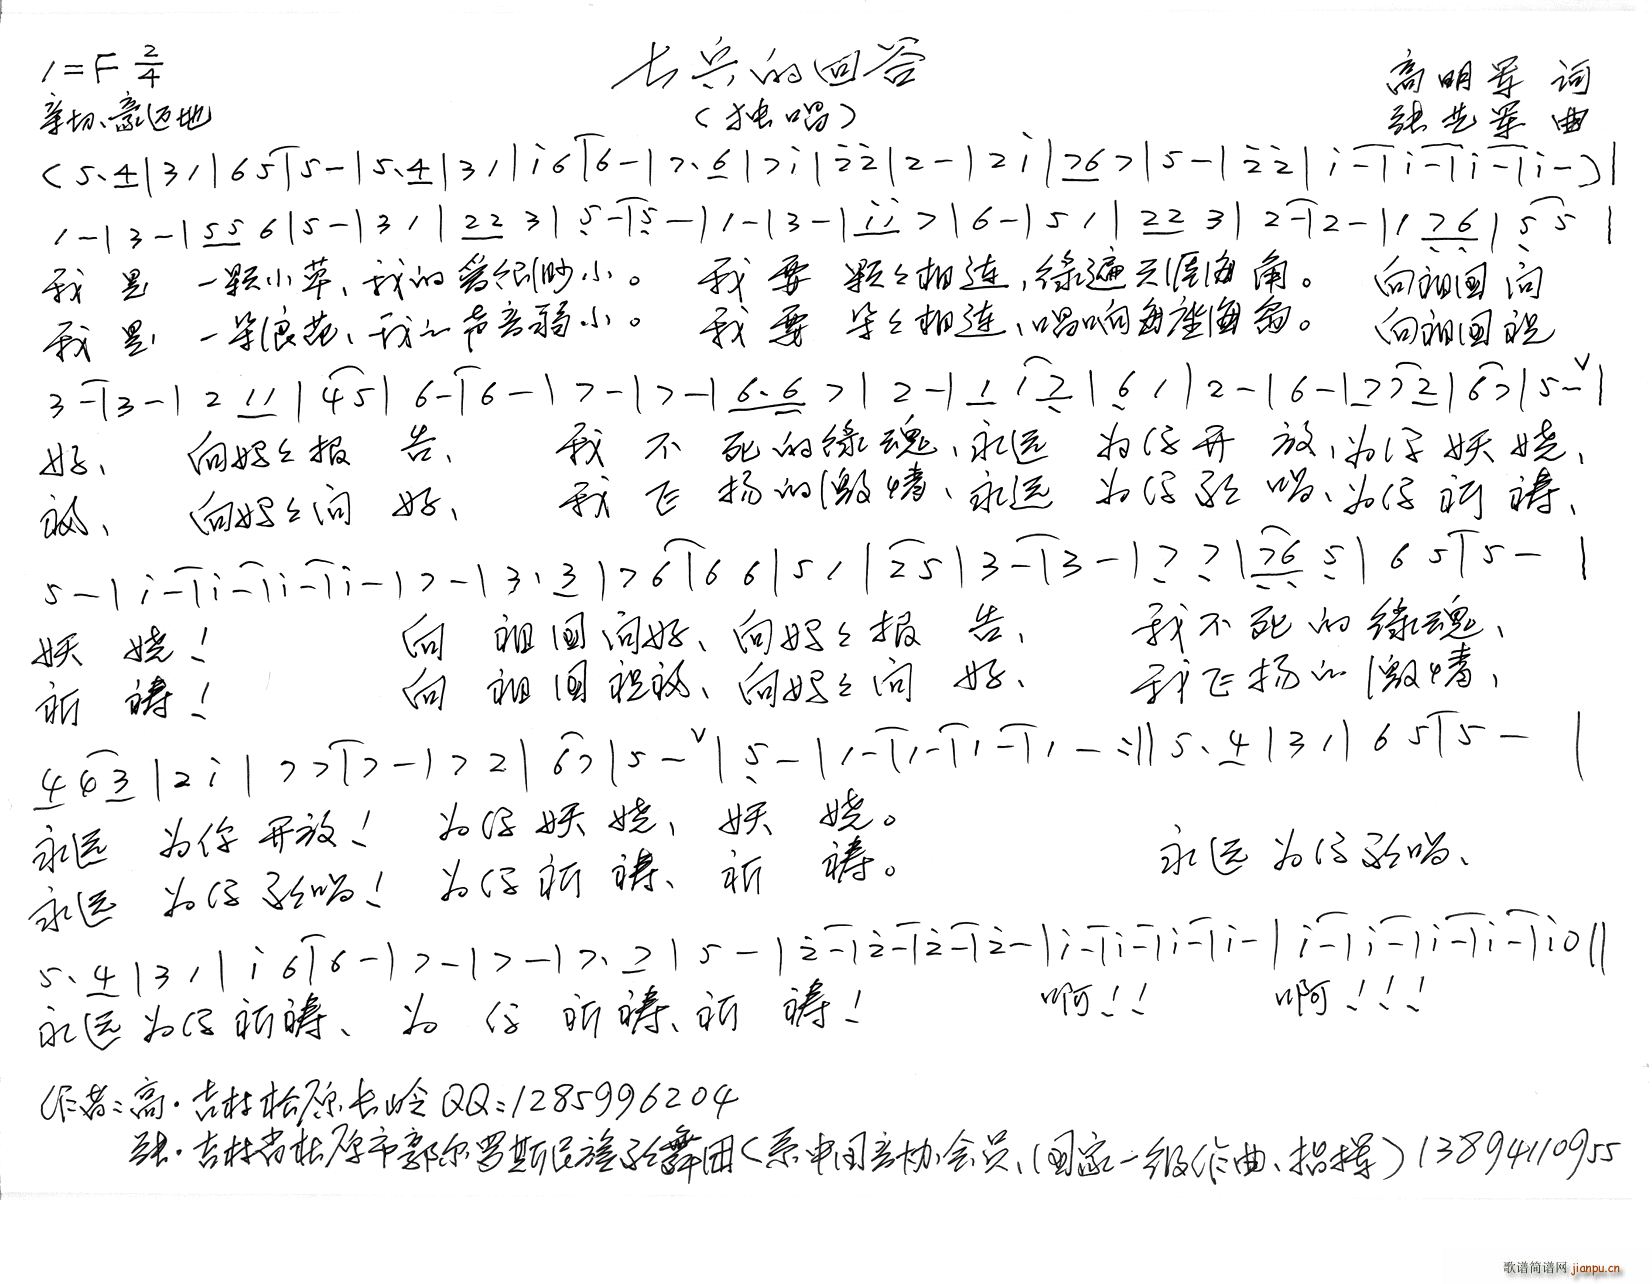 1=F 2/4
士兵的回答
高明军 词
亲切、豪迈地
(独唱)
张先军 曲
(5.4|31|65|5-|5.4|31|i6|6-|7.6|7i|22|2-|2i|767|5-|22|i-|i-|i-|i-)|
1-|3-|556|5-|31|223|5-|5-|1-|3-|ii7|6-|51|223|2-|2-|176|55|
我是 一颗小草、我的 很渺小。 我要 颗颗相连,绿遍天涯海角。 向祖国问
我是 一朵浪花、我的声音弱小。 我要 朵朵相连、唱响海角。 向祖国祝
3-|3-|211|45|6-|6-|7-|7-|6.67|2-|112|61|2-|6-|772|67|5-|
好、 向妈妈报告、 我不死的绿魂、永远 为你开放,为你妖娆、
福、 向妈妈问好、 我飞扬的激情、永远 为你歌唱、为你祈祷、
5-|i-|i-|i-|i-|7-|3.3|76|66|51|25|3-|3-|77|765|65|5-|
妖娆! 向祖国问好、向妈妈报告、 我不死的绿魂、
祈祷! 向祖国祝福、向妈妈问好、 我飞扬的激情、
443|2i|77|7-|72|67|5-|5-|1-|1-|1-|1-:||5.4|31|65|5-|
永远 为你开放! 为你妖娆、妖娆。
永远 为你歌唱! 为你祈祷、祈祷。 永远为你歌唱、
5.4|31|i6|6-|7-|7-|7.7|5-|2-|2-|2-|2-|i-|i-|i-|i-|i-|i-|i-|i-|i0||
永远为你祈祷、为你祈祷、祈祷! 啊!! 啊!!!
作者:高·吉林松原长岭QQ:1285996204
张·吉林省松原市郭尔罗斯民族歌舞团(系中国音协会员、国家一级作曲、指挥)13894110955
歌谱简谱网 jianpu.cn